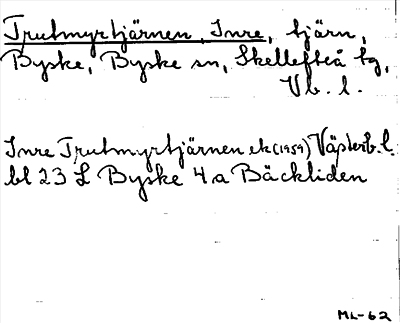 Trutmyrtjärnen, Inre, tjärn,
Byske, Byske sn, Skellefteå tg,
Vb. l.
Inre Trutmyrtjärnen ek (1959) Västerb. l.
bl 23 L Byske 4 a Bäckliden
ML-62